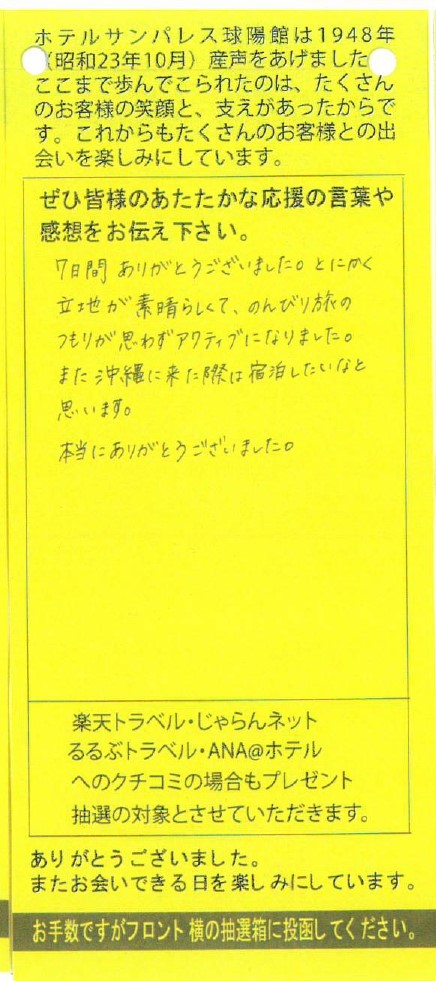 ホテルサンパレス球陽館は1948年
（昭和23年10月）産声をあげました
ここまで歩んでこられたのは、たくさん
のお客様の笑顔と、支えがあったからで
す。これからもたくさんのお客様との出
会いを楽しみにしています。
ぜひ皆様のあたたかな応援の言葉や
感想をお伝え下さい。
7日間 ありがとうございました。とにかく
立地が素晴らしくて、のんびり旅の
つもりが思わずアクティブになりました。
また沖縄に来た際は宿泊したいなと
思います。
本当にありがとうございました。
楽天トラベル・じゃらんネット
るるぶトラベル・ANA@ホテル
へのクチコミの場合もプレゼント
抽選の対象とさせていただきます。
ありがとうございました。
またお会いできる日を楽しみにしています。
お手数ですがフロント横の抽選箱に投函してください。